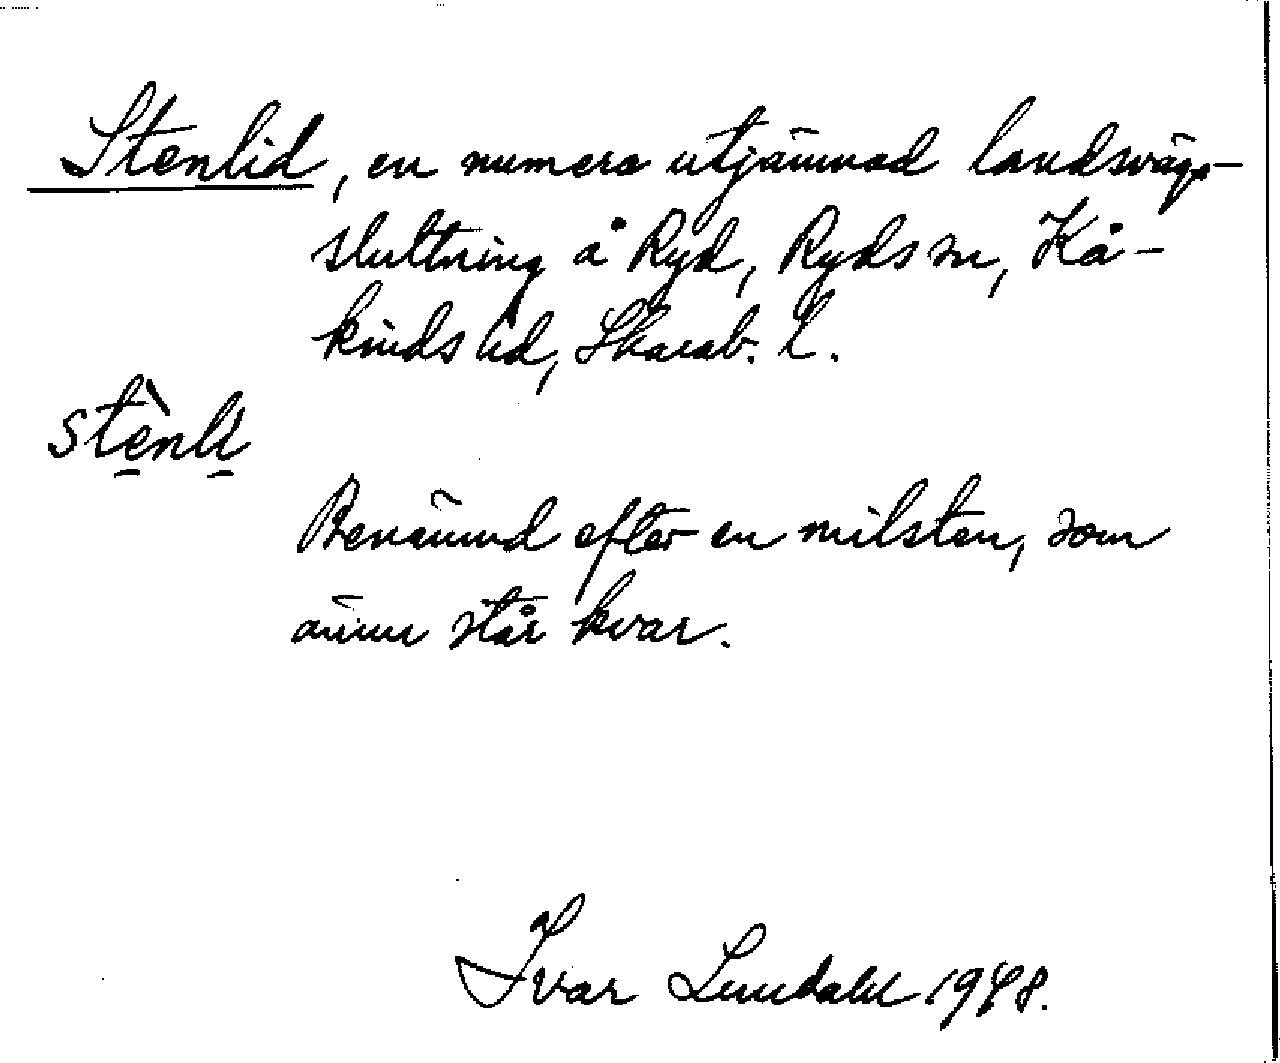 Stenlid, en numera utjämnad landsvägs-
sluttning å Ryd, Ryds sn, Kå-
kinds hd, Skarab. L.
stènli
Benämnd efter en milsten, som
ännu står kvar.
Ivar Lundahl 1948.